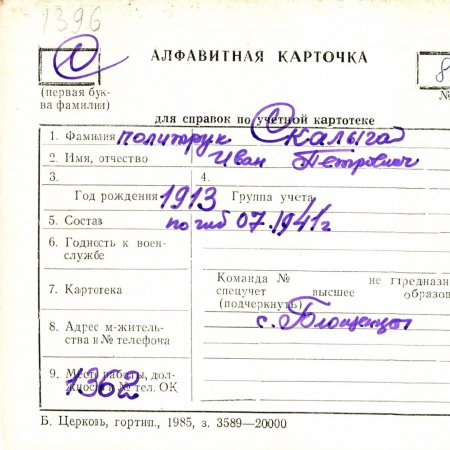 1396
С
АЛФАВИТНАЯ КАРТОЧКА
8
(первая бук-
ва фамилии)
№
для справок по учетной картотеке
1. Фамилия политрук Скалыга
2. Имя, отчество Иван Петрович
3. 4.
Год рождения 1913 Группа учета
5. Состав погиб 07.1941г
6. Годность к воен-
службе
Команда № не предназн
7. Картотека спецучет высшее образов
(подчеркнуть)
с. Блощинцы
8. Адрес м-житель-
ства и № телефона
9. Место работы, дол-
жность и № тел. ОК
1362
Б. Церковь, гортип., 1985, з. 3589—20000